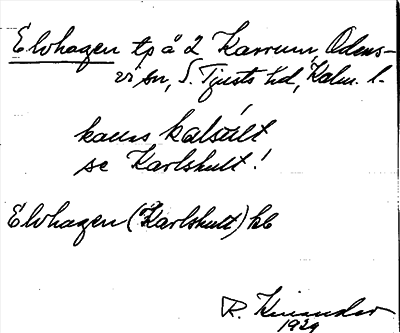 Elvhagen tp å 2 Karrum, Odens-
vi sn, S. Tjusts hd, Kalm. l.
kallas kalsúlt
se Karlshult!
Elvhagen (Karlshult) hb
R. Kinander
1929